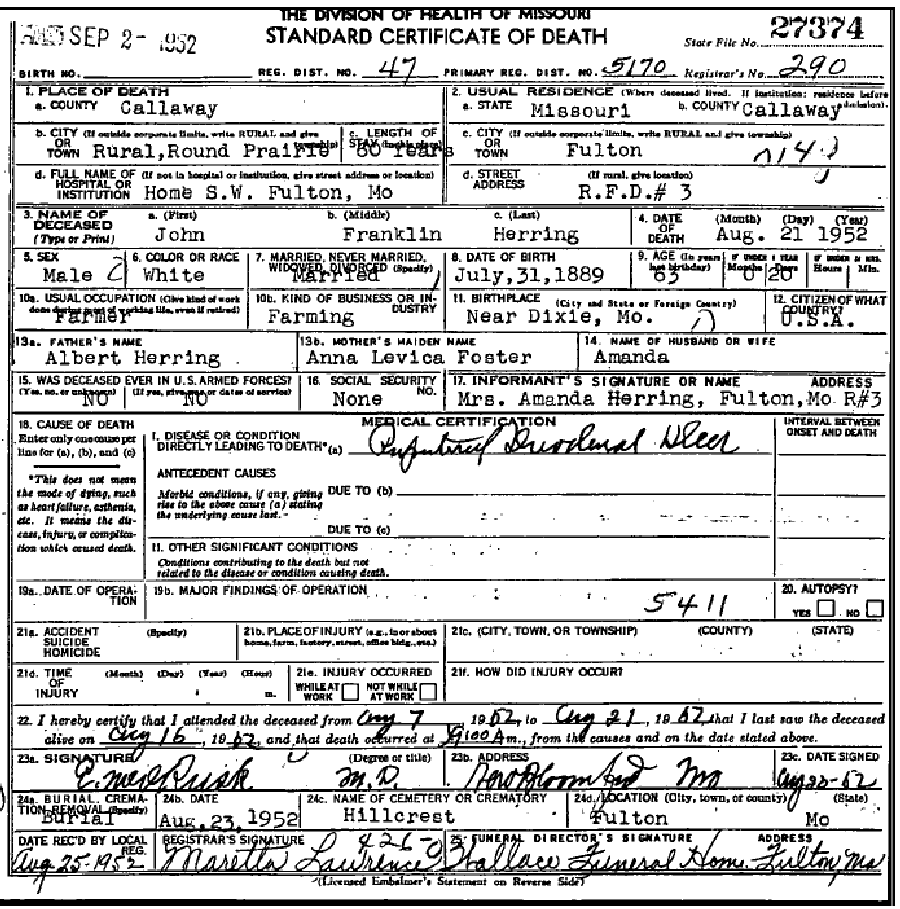 THE DIVISION OF HEALTH OF MISSOURI
SEP 2- 1952 STANDARD CERTIFICATE OF DEATH State File No. 27374
BIRTH NO. REG. DIST. NO. 47 PRIMARY REG. DIST. NO. 5170 Registrar's No. 290
1. PLACE OF DEATH 2. USUAL RESIDENCE (Where deceased lived. If institution: residence before admission).
a. COUNTY Callaway a. STATE Missouri b. COUNTY Callaway
b. CITY (If outside corporate limits, write RURAL and give township) c. LENGTH OF STAY c. CITY (If outside corporate limits, write RURAL and give township)
OR TOWN Rural, Round Prairie Years OR TOWN Fulton
d. FULL NAME OF (If not in hospital or institution, give street address or location) d. STREET (If rural, give location)
HOSPITAL OR INSTITUTION Home S.W. Fulton, Mo ADDRESS R.F.D.# 3
3. NAME OF DECEASED a. (First) b. (Middle) c. (Last) 4. DATE OF DEATH (Month) (Day) (Year)
(Type or Print) John Franklin Herring Aug. 21 1952
5. SEX 6. COLOR OR RACE 7. MARRIED, NEVER MARRIED, WIDOWED, DIVORCED (Specify) 8. DATE OF BIRTH 9. AGE (In years last birthday) IF UNDER 1 YEAR Months Days IF UNDER 24 HRS. Hours Min.
Male White Married July,31,1889 63 0 20
10a. USUAL OCCUPATION (Give kind of work done during most of working life, even if retired) 10b. KIND OF BUSINESS OR INDUSTRY 11. BIRTHPLACE (City and State or Foreign Country) 12. CITIZEN OF WHAT COUNTRY?
Farmer Farming Near Dixie, Mo. U.S.A.
13a. FATHER'S NAME 13b. MOTHER'S MAIDEN NAME 14. NAME OF HUSBAND OR WIFE
Albert Herring Anna Levica Foster Amanda
15. WAS DECEASED EVER IN U.S. ARMED FORCES? 16. SOCIAL SECURITY NO. 17. INFORMANT'S SIGNATURE OR NAME ADDRESS
(Yes, no, or unknown) NO (If yes, give war or dates of service) NO None Mrs. Amanda Herring, Fulton,Mo R#3
18. CAUSE OF DEATH MEDICAL CERTIFICATION INTERVAL BETWEEN ONSET AND DEATH
Enter only one cause per line for (a), (b), and (c)
I. DISEASE OR CONDITION DIRECTLY LEADING TO DEATH*(a) Duodenal Ulcer
*This does not mean the mode of dying, such as heart failure, asthenia, etc. It means the disease, injury, or complication which caused death.
ANTECEDENT CAUSES
Morbid conditions, if any, giving rise to the above cause (a) stating the underlying cause last. DUE TO (b)
DUE TO (c)
II. OTHER SIGNIFICANT CONDITIONS
Conditions contributing to the death but not related to the disease or condition causing death.
19a. DATE OF OPERATION 19b. MAJOR FINDINGS OF OPERATION 5411 20. AUTOPSY?
YES NO
21a. ACCIDENT SUICIDE HOMICIDE (Specify) 21b. PLACE OF INJURY (e.g., in or about home, farm, factory, street, office bldg., etc.) 21c. (CITY, TOWN, OR TOWNSHIP) (COUNTY) (STATE)
21d. TIME OF INJURY (Month) (Day) (Year) (Hour) m. 21e. INJURY OCCURRED WHILE AT WORK NOT WHILE AT WORK 21f. HOW DID INJURY OCCUR?
22. I hereby certify that I attended the deceased from Aug 7, 1952, to Aug 21, 1952, that I last saw the deceased
alive on Aug 16, 1952, and that death occurred at 9:00 Am., from the causes and on the date stated above.
23a. SIGNATURE (Degree or title) 23b. ADDRESS 23c. DATE SIGNED
Rusk M.D. New Bloomfield Mo Aug 22-52
24a. BURIAL, CREMATION, REMOVAL (Specify) 24b. DATE 24c. NAME OF CEMETERY OR CREMATORY 24d. LOCATION (City, town, or county) (State)
Burial Aug.23,1952 Hillcrest Fulton Mo
DATE REC'D BY LOCAL REG. REGISTRAR'S SIGNATURE 426- 25. FUNERAL DIRECTOR'S SIGNATURE ADDRESS
Aug 25-1952 Maretta Lawrence Wallace Funeral Home. Fulton, Mo
(Licensed Embalmer's Statement on Reverse Side)